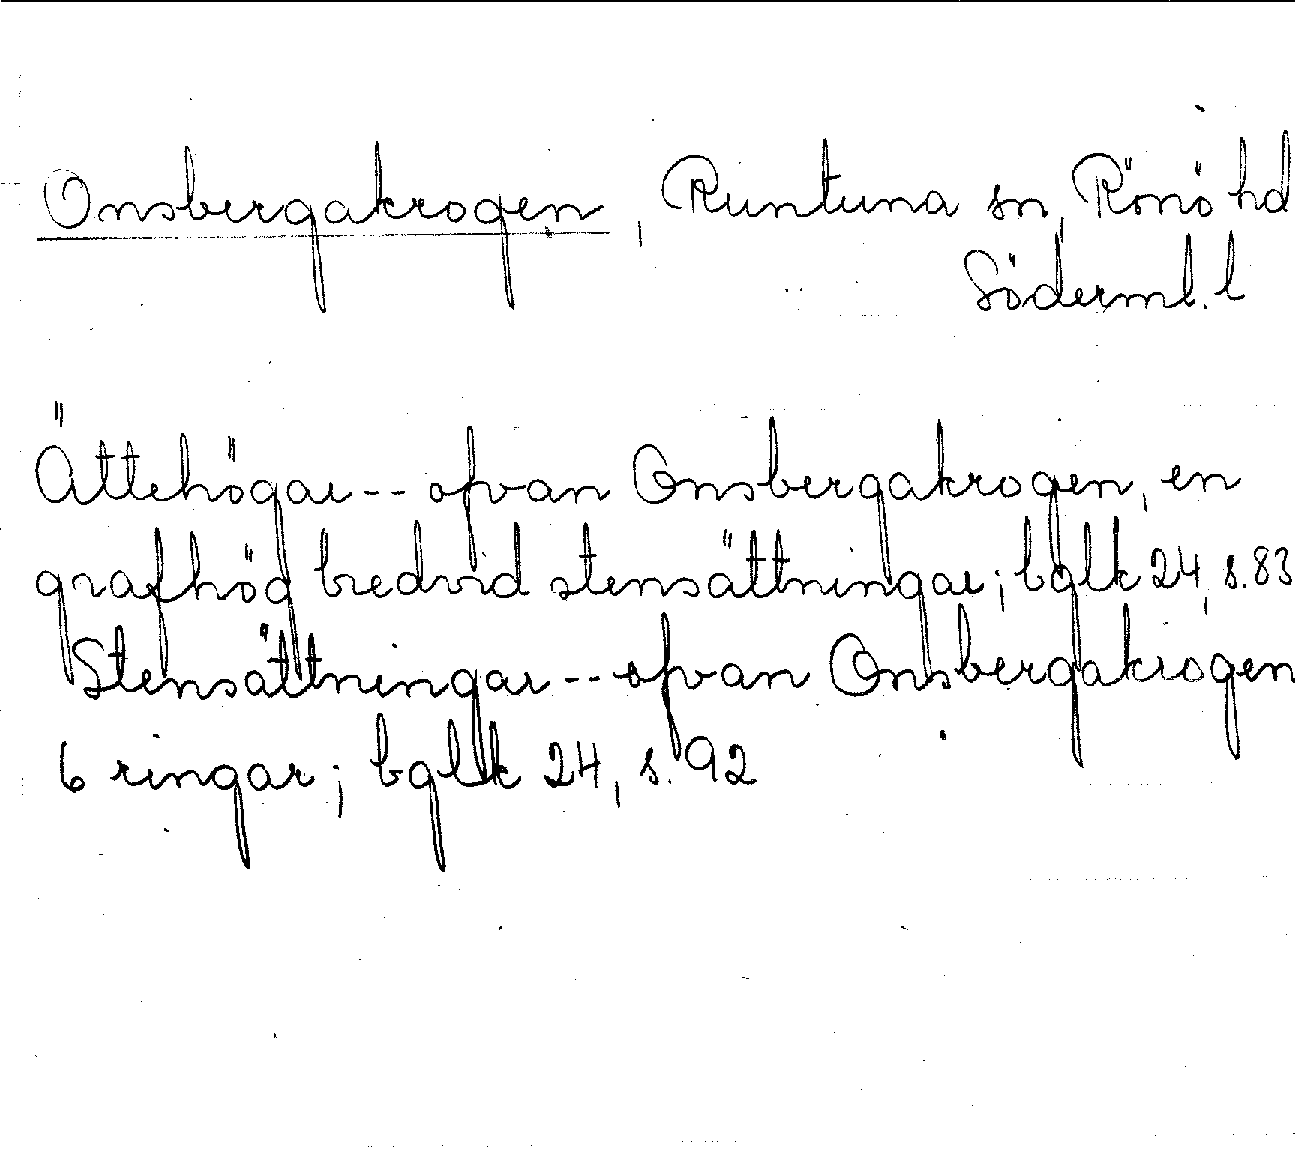 Onsbergakrogen, Runtuna sn, Rönö hd
Söderml. l
Ättehögar -- ofvan Onsbergakrogen, en
grafhög bredvid stensättningar; bglk 24, s. 83
Stensättningar -- ofvan Onsbergakrogen
6 ringar; bglk 24, s. 92